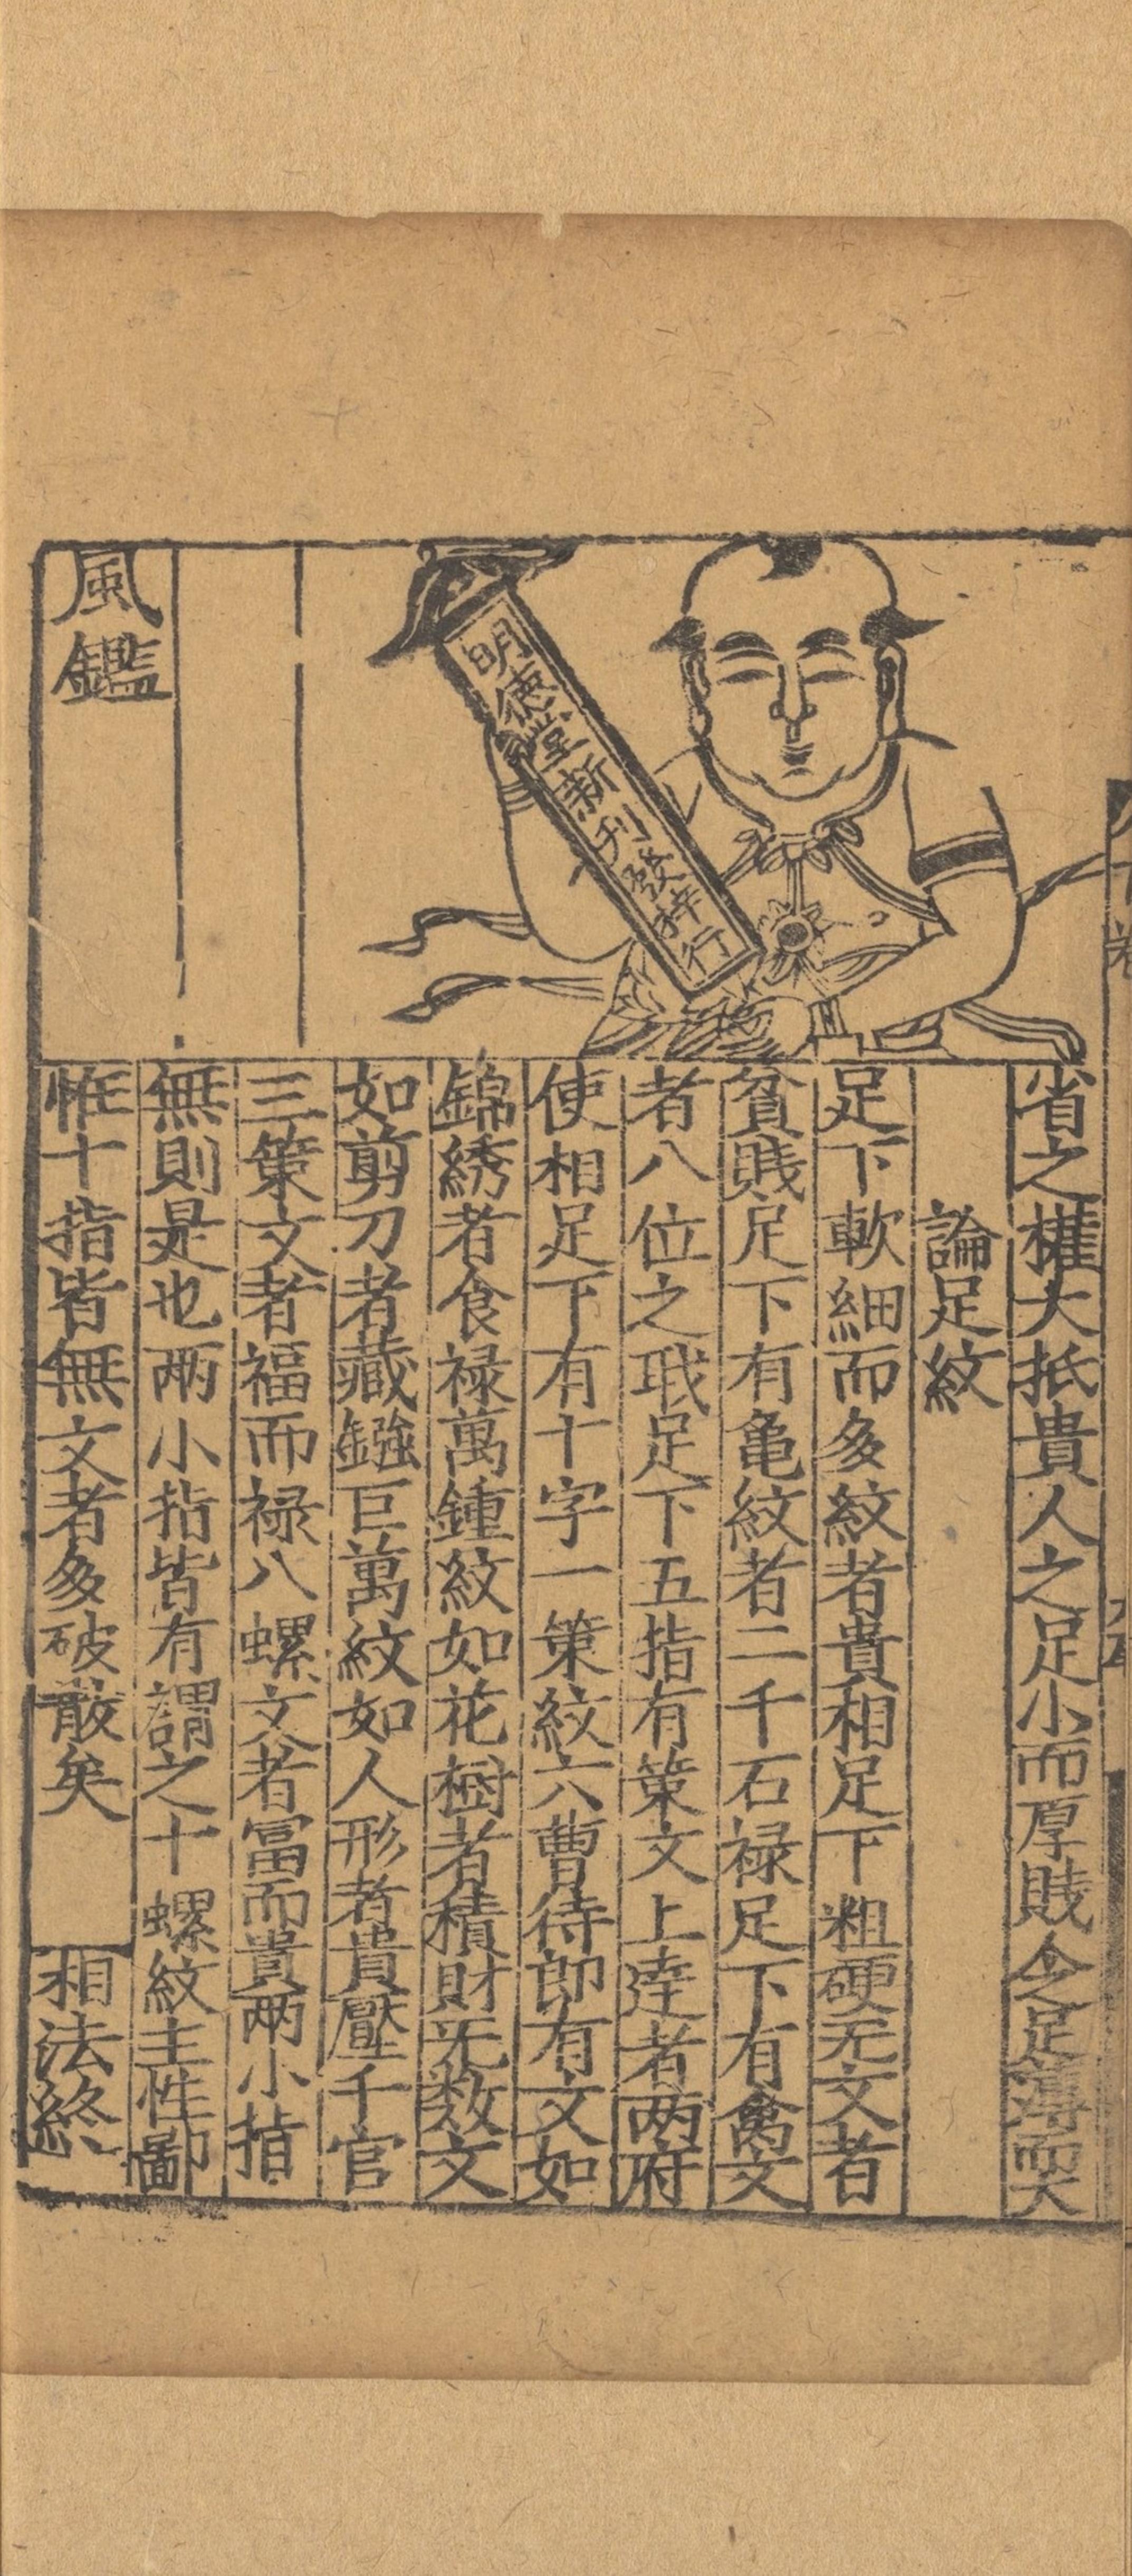 明德堂新刊發梓行
風鑑
省之權大抵貴人之足小而厚賎人之足薄而大
論足紋
足下軟細而多紋者貴相足下粗硬无文者
貧賎足下有亀紋者二千石禄足下有禽文
者八位之職足下五指有策文上達者两府
使相足下有十字一策紋六曹侍郎有文如
錦綉者食禄萬鍾紋如花樹者積財无数文
如剪刀者藏鏹巨萬紋如人形者貴壓千官
三策文者福而禄八螺文者冨而貴兩小指
無則是也兩小指皆有謂之十螺紋主性鄙
惟十指皆無文者多破散矣
相法終